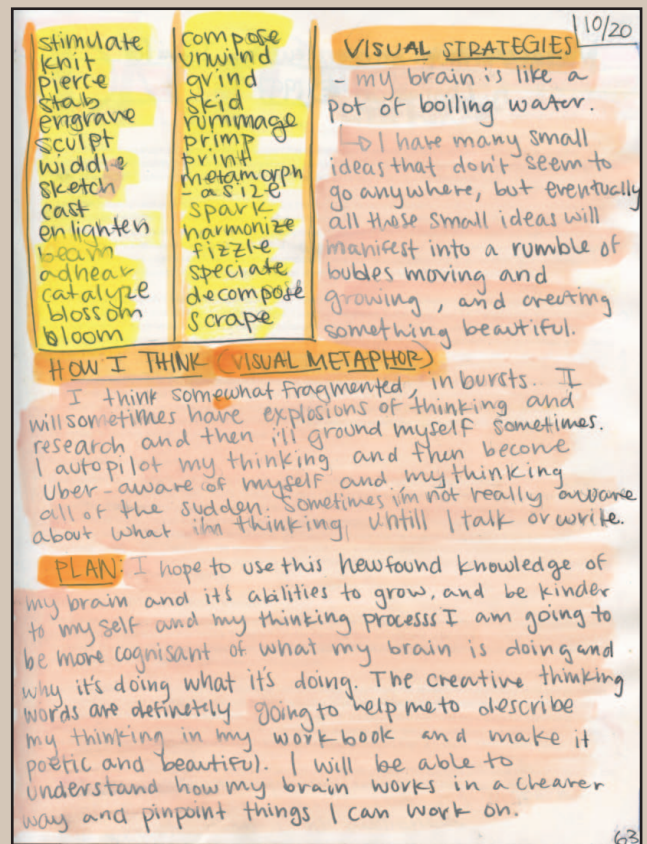 stimulate
knit
pierce
stab
engrave
sculpt
widdle
sketch
cast
enlighten
beam
adhear
catalyze
blossom
bloom
compose
unwind
grind
skid
rummage
primp
print
metamorph
-asize
spark
harmonize
fizzle
speciate
decompose
scrape
110/20
VISUAL STRATEGIES
- my brain is like a
pot of boiling water.
→ I have many small
ideas that don't seem to
go anywhere, but eventually
all those small ideas will
manifest into a rumble of
bubles moving and
growing, and creating
something beautiful.
HOW I THINK (VISUAL METAPHOR)
I think somewhat fragmented, in bursts. I
will sometimes have explosions of thinking and
research and then i'll ground myself sometimes.
I autopilot my thinking and then become
Uber-aware of myself and my thinking
all of the sudden. Sometimes i'm not really aware
about what i'm thinking, untill I talk or write.
PLAN: I hope to use this newfound knowledge of
my brain and it's abilities to grow, and be kinder
to myself and my thinking processs I am going to
be more cognisant of what my brain is doing and
why it's doing what it's doing. The creative thinking
words are definetely going to help me to describe
my thinking in my workbook and make it
poetic and beautiful. I will be able to
understand how my brain works in a clearer
way and pinpoint things I can work on.
63